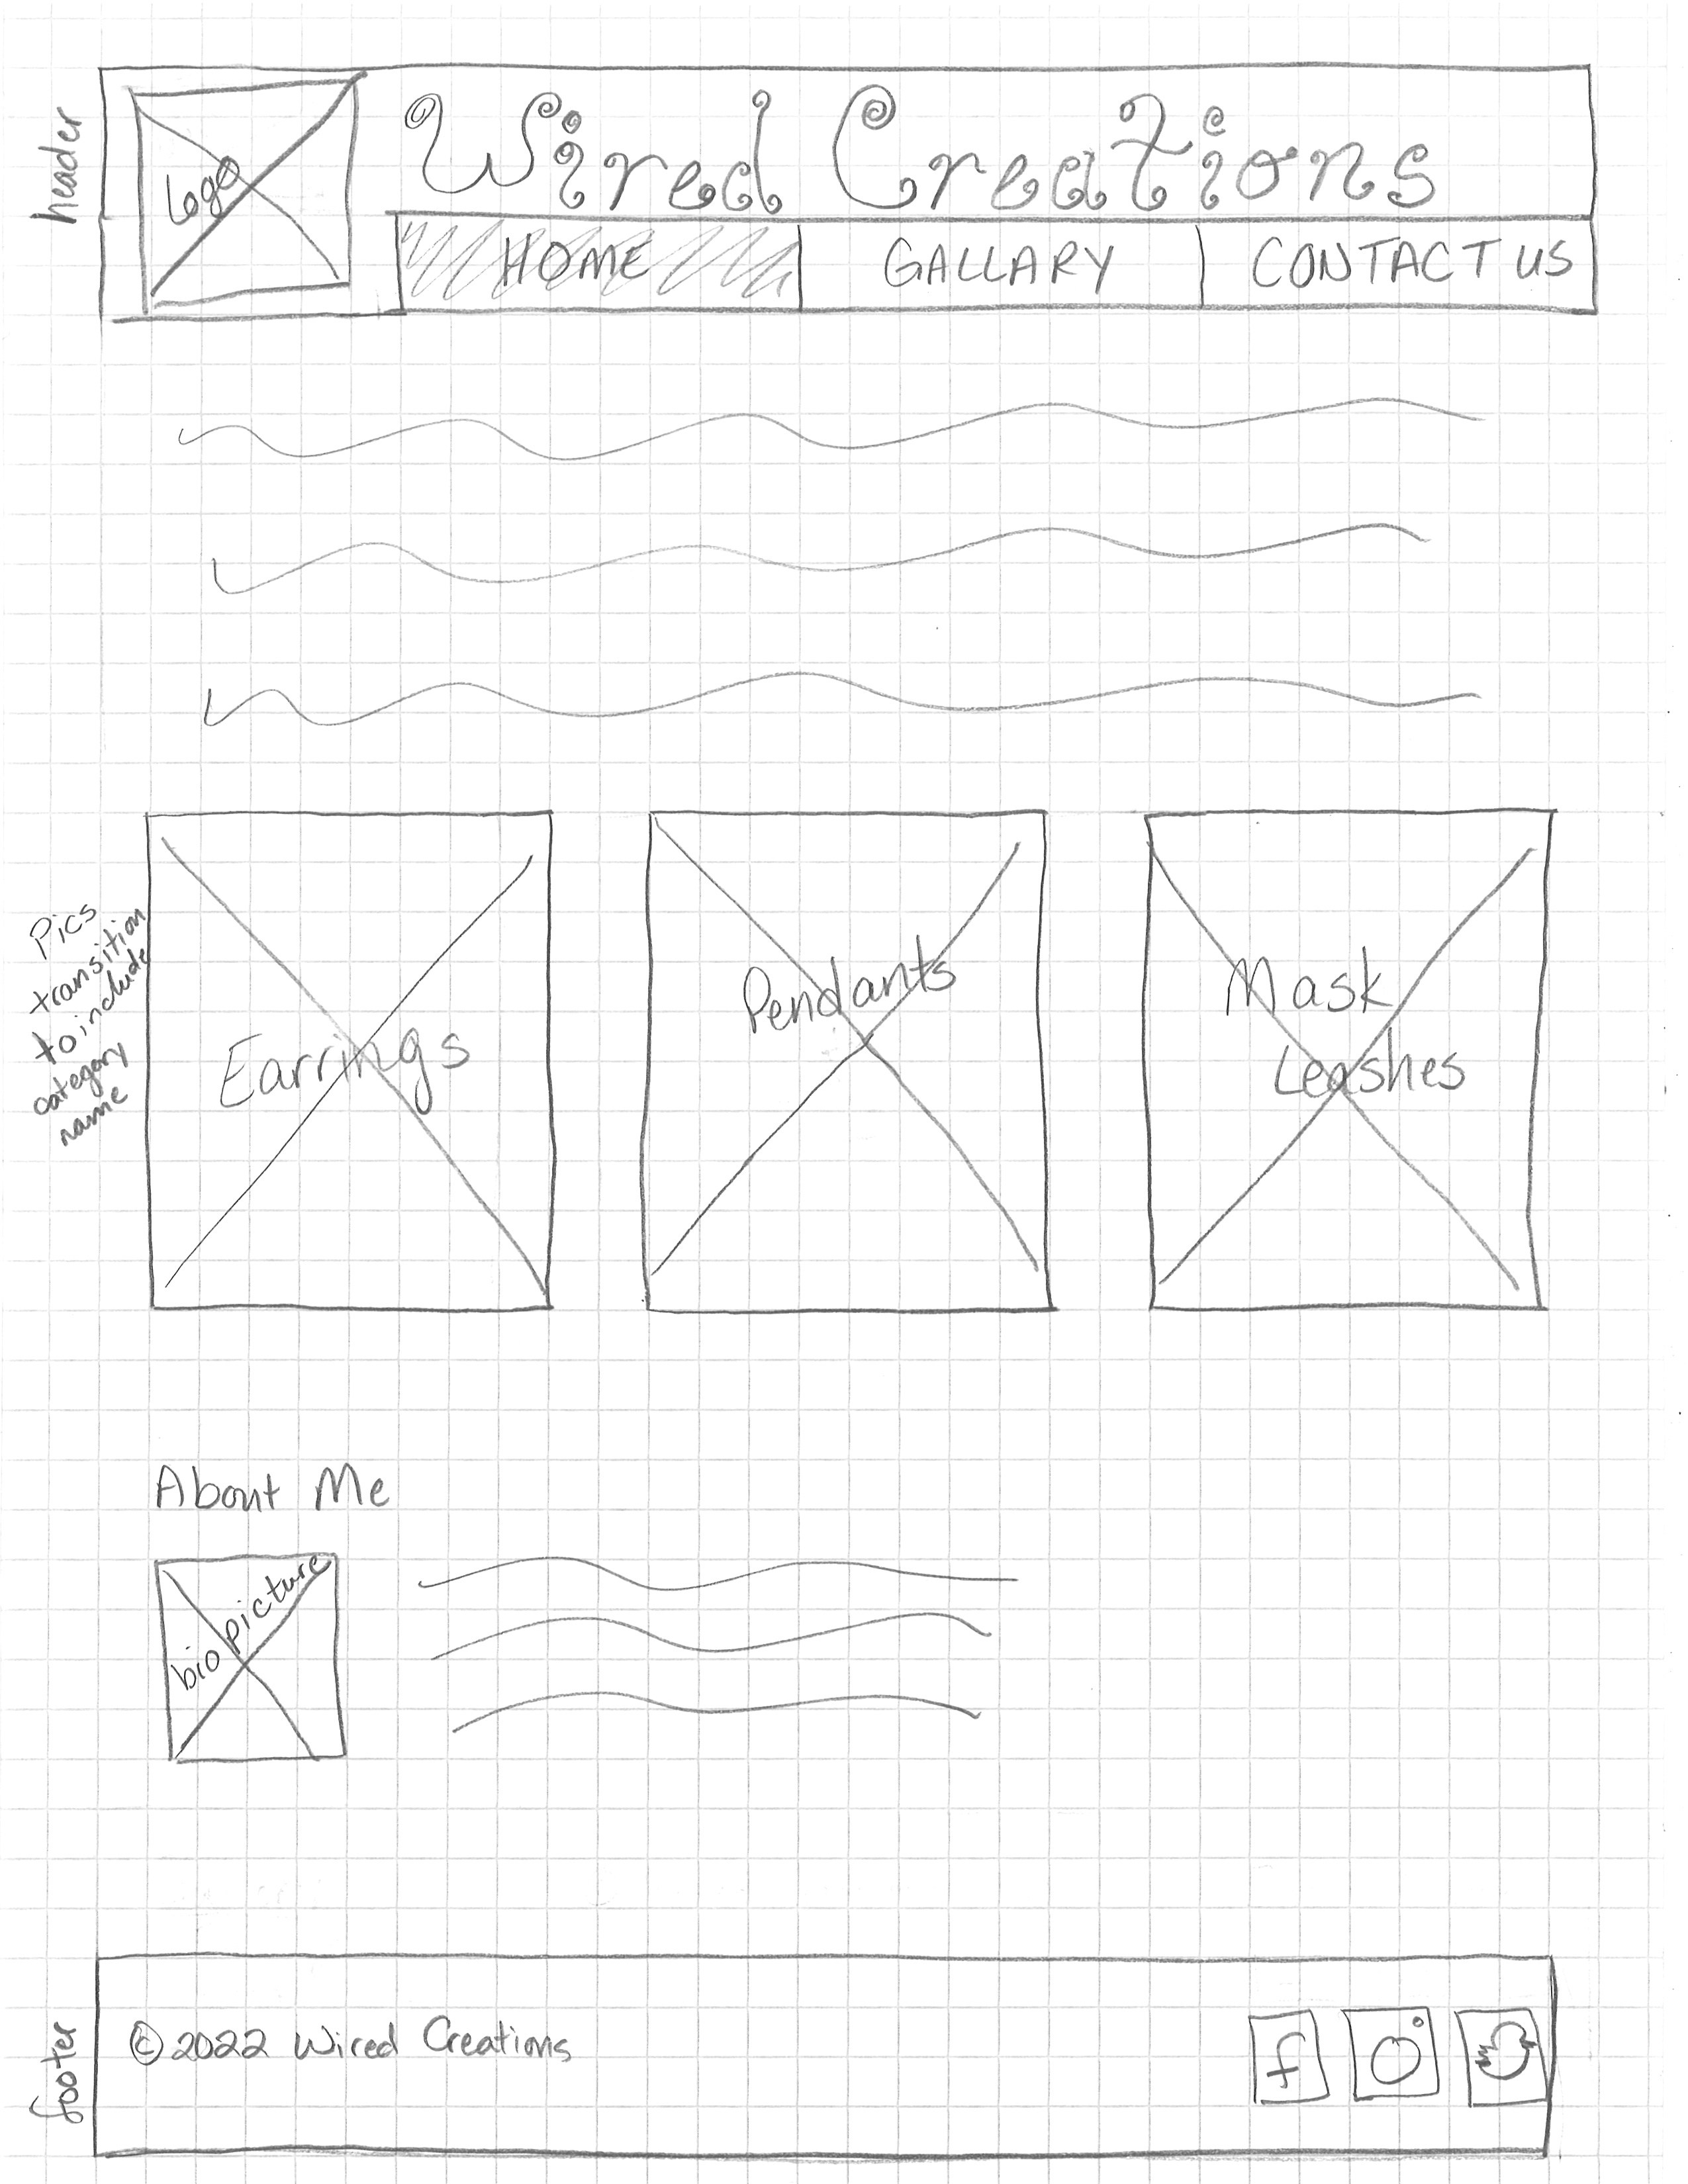 header
Logo
Wired Creations
HOME
GALLARY
CONTACT US
Pics
transition
to include
category
name
Earrings
Pendants
Mask
Leashes
About Me
bio picture
footer
©2022 Wired Creations
f